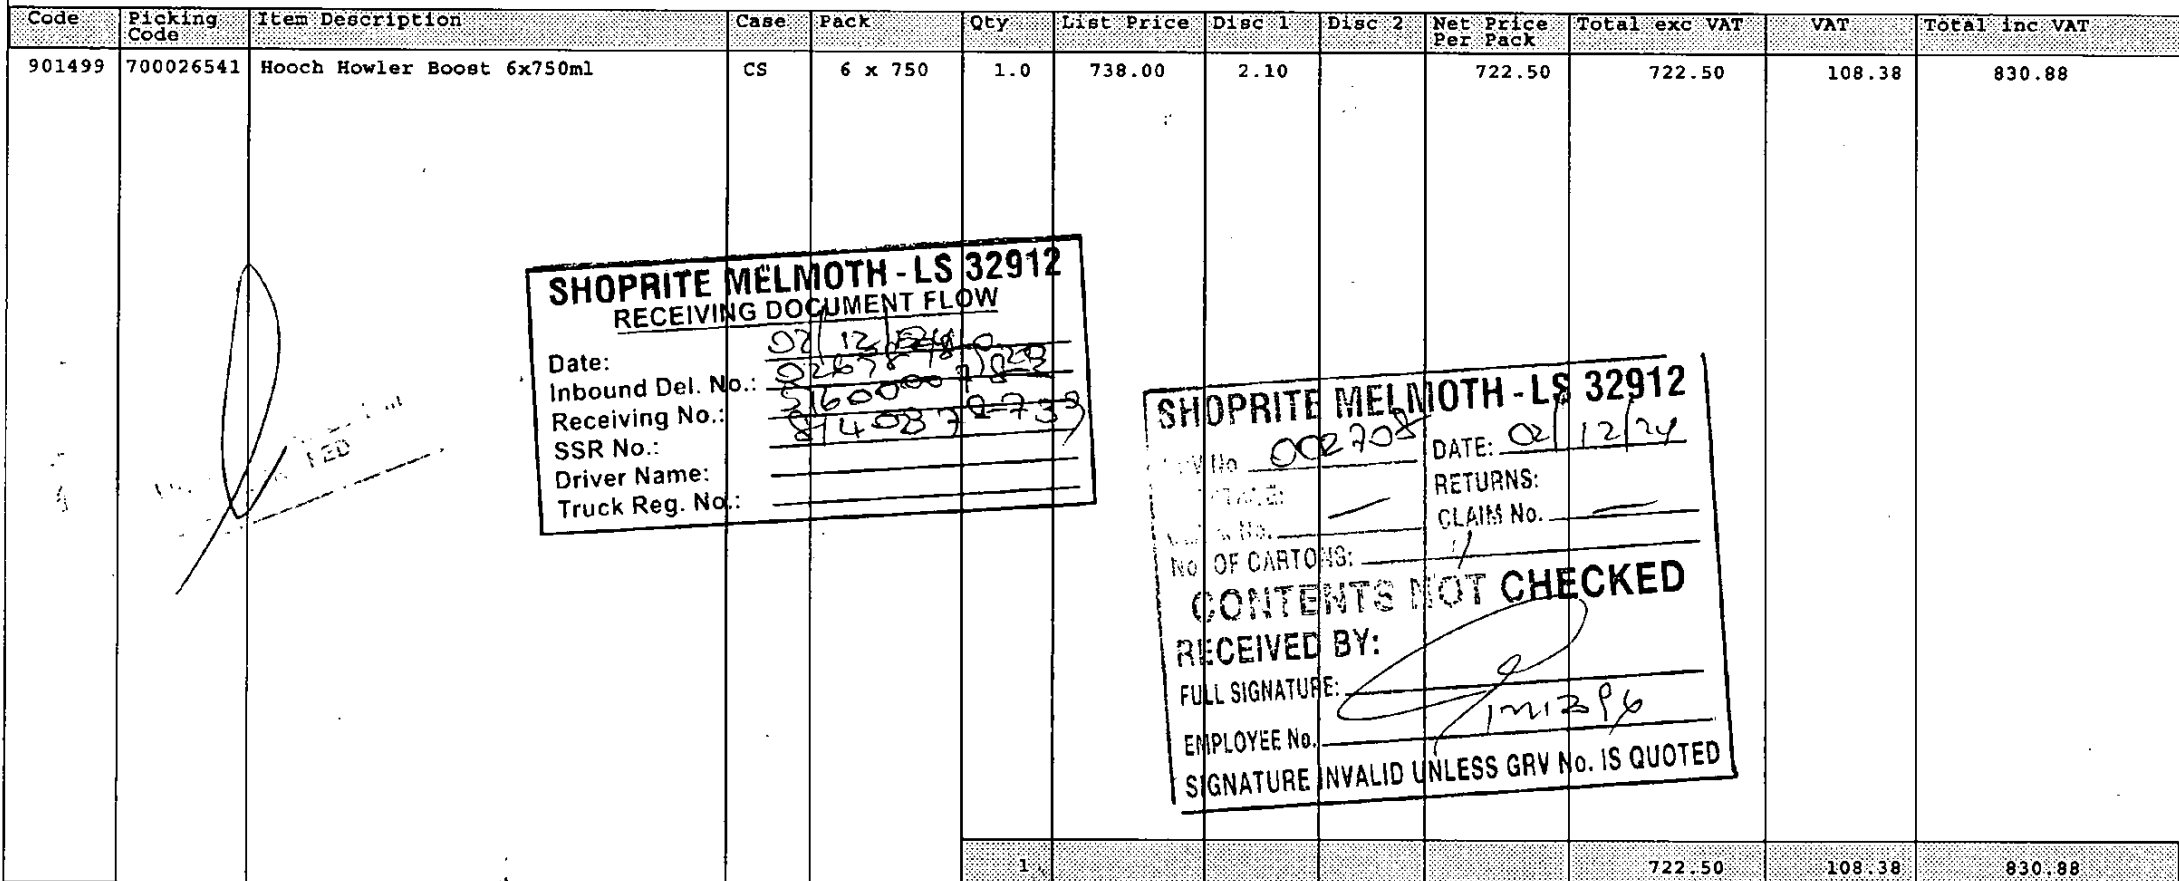 Code Picking Code Item Description Case Pack Qty List Price Disc 1 Disc 2 Net Price Per Pack Total exc VAT VAT Total inc VAT
901499 700026541 Hooch Howler Boost 6x750ml CS 6 x 750 1.0 738.00 2.10 722.50 722.50 108.38 830.88
SHOPRITE MELMOTH - LS 32912
RECEIVING DOCUMENT FLOW
Date: 02/12/
Inbound Del. No.:
Receiving No.:
SSR No.:
Driver Name:
Truck Reg. No.:
SHOPRITE MELMOTH - LS 32912
No 002708 DATE: 02/12/24
RETURNS:
CLAIM No. —
No. OF CARTONS: 1
CONTENTS NOT CHECKED
RECEIVED BY:
FULL SIGNATURE:
EMPLOYEE No.
SIGNATURE INVALID UNLESS GRV No. IS QUOTED
1 722.50 108.38 830.88